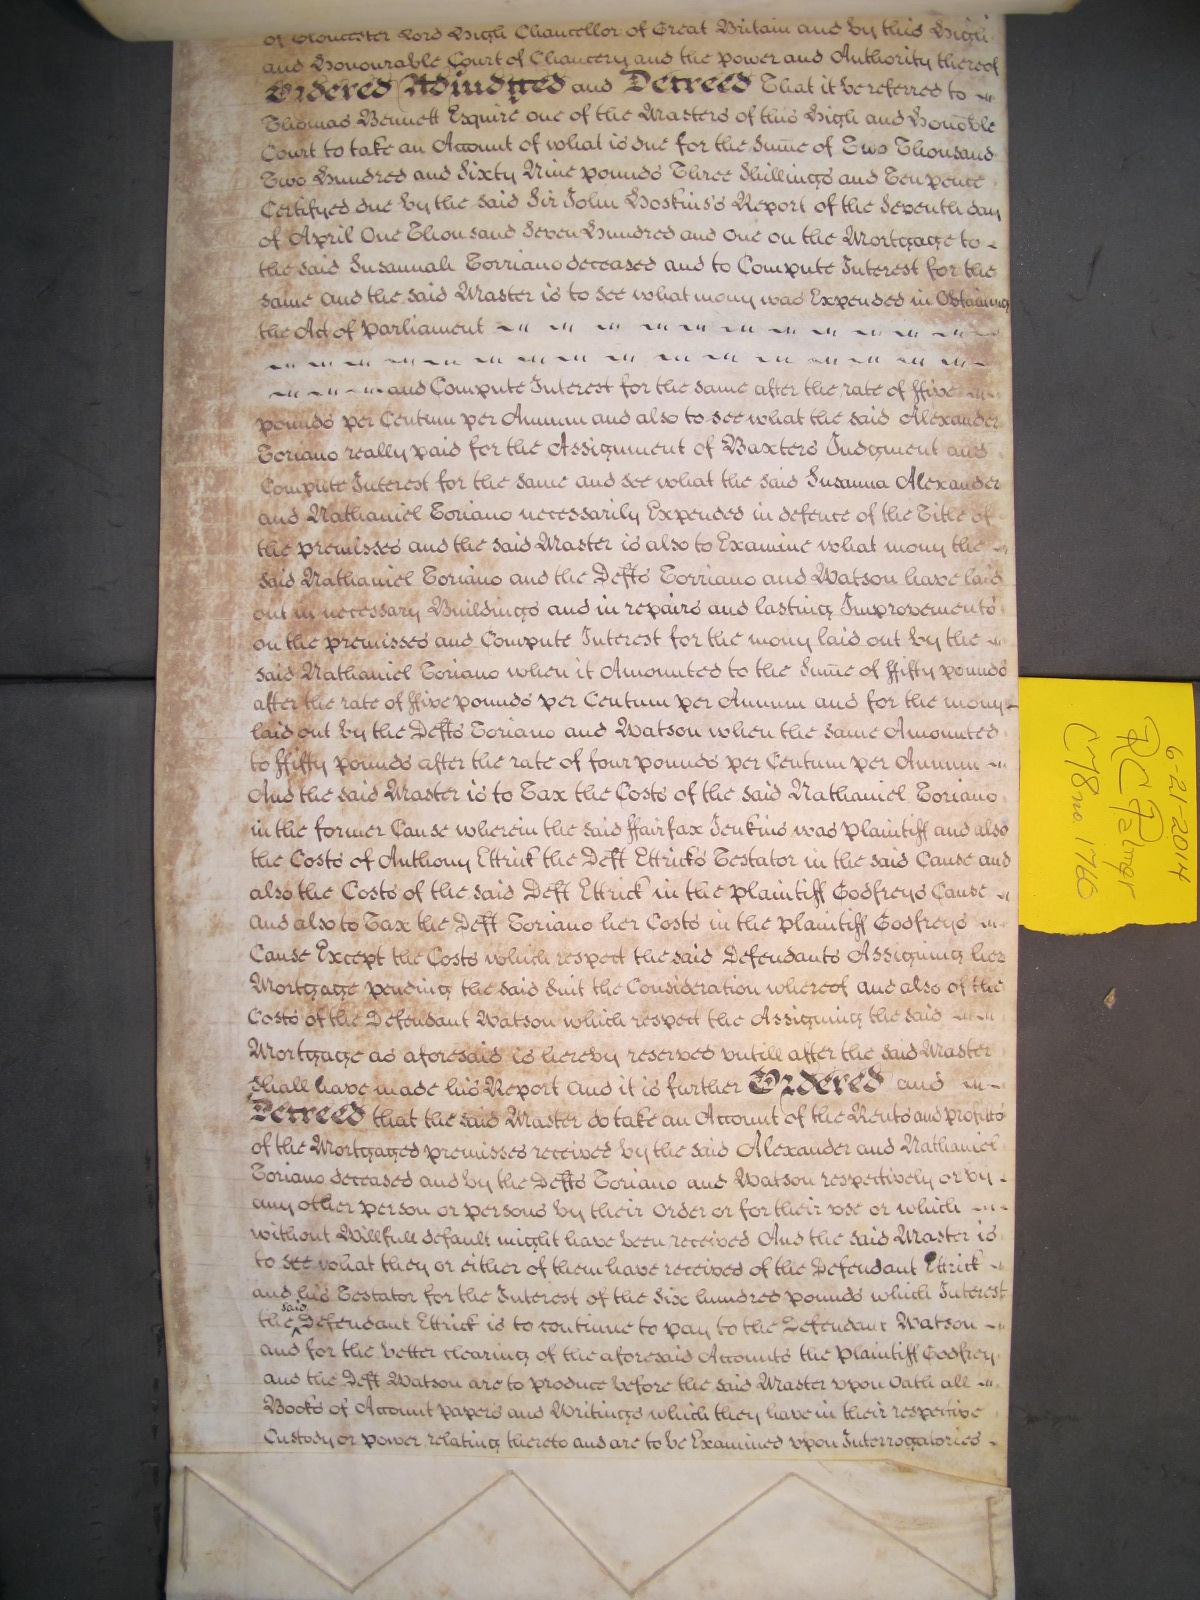 of Gloucester Lord High Chancellor of Great Britain and by this High
and Honourable Court of Chancery and the power and Authority thereof
Ordered Adjudged and Decreed That it be referred to
Thomas Bennett Esquire one of the Masters of this High and Honoble
Court to take an Account of what is due for the Sume of Two Thousand
Two Hundred and Sixty Nine pounds Three Shillings and Ten pence
Certifyed due by the said Sir John Hoskins's Report of the Seventh day
of April One Thousand Seven Hundred and One on the Mortgage to
the said Susannah Torriano deceased and to Compute Interest for the
same and the said Master is to see what mony was Expended in Obtaining
the Act of Parliament
and Compute Interest for the same after the rate of ffive
pounds per Centum per Annum and also to see what the said Alexander
Toriano really paid for the Assignment of Baxters Judgment and
Compute Interest for the same and see what the said Susanna Alexander
and Nathaniel Toriano necessarily Expended in defence of the Title of
the premisses and the said Master is also to Examine what mony the
said Nathaniel Toriano and the Defts Torriano and Watson have laid
out in necessary Buildings and in repairs and lasting Improvements
on the premisses and Compute Interest for the mony laid out by the
said Nathaniel Toriano when it Amounted to the Sume of ffifty pounds
after the rate of ffive pounds per Centum per Annum and for the mony
laid out by the Defts Toriano and Watson when the same Amounted
to ffifty pounds after the rate of four pounds per Centum per Annum
And the said Master is to Tax the Costs of the said Nathaniel Toriano
in the former Cause wherein the said ffairfax Jenkins was plaintiff and also
the Costs of Anthony Ettrick the Deft Ettricks Testator in the said Cause and
also the Costs of the said Deft Ettrick in the plaintiff Godfreys Cause
and also to Tax the Deft Toriano her Costs in the plaintiff Godfreys
Cause Except the Costs which respect the said Defendants Assigning her
Mortgage pending the said Suit the Consideration whereof and also of the
Costs of the Defendant Watson which respect the Assigning the said
Mortgage as aforesaid is hereby reserved untill after the said Master
shall have made his Report And it is further Ordered and
Decreed that the said Master do take an Account of the Rents and profitts
of the Mortgaged premisses received by the said Alexander and Nathaniel
Toriano deceased and by the Defts Toriano and Watson respectively or by
any other person or persons by their Order or for their use or which
without Willfull default might have been received And the said Master is
to see what they or either of them have received of the Defendant Ettrick
and his Testator for the Interest of the Six hundred pounds which Interest
the said Defendant Ettrick is to continue to pay to the Defendant Watson
and for the better clearing of the aforesaid Accounts the plaintiff Godfrey
and the Deft Watson are to produce before the said Master upon Oath all
Books of Account papers and Writings which they have in their respective
Custody or power relating thereto and are to be Examined upon Interrogatories
6-21-2014
RC Palmer
C78 no. 1766